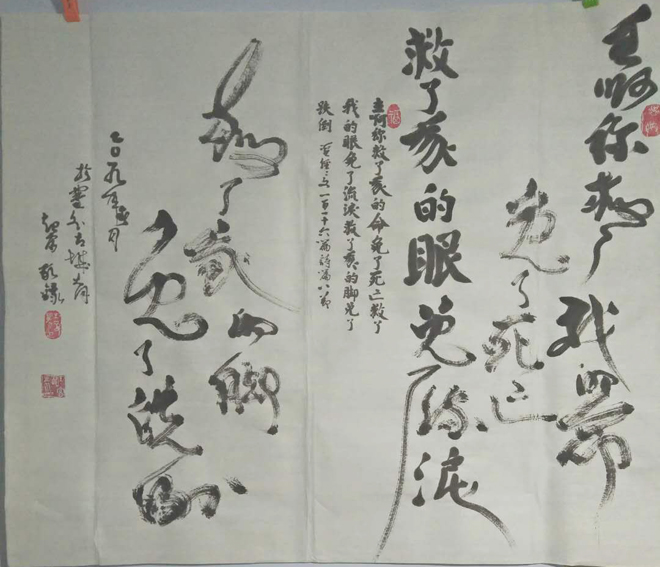 主啊你救了我的命
免了死亡
救了我的眼免了流淚
主啊你救了我的命免了死亡救了
我的眼免了流淚救了我的脚免了
跌倒 一百十六篇 八節
救了我的脚
免了跌倒
二〇一九年 月
敬錄